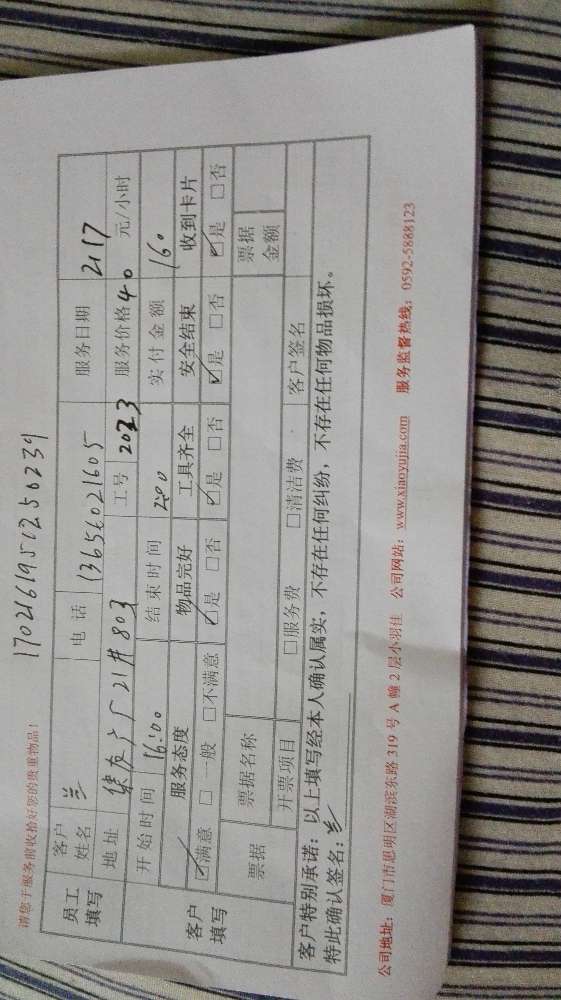 请您于服务前收拾好您的贵重物品！
17021619501250239
员工填写 客户姓名 兰 电话 13656021605 服务日期 2117
地址 21# 803 工号 2023 服务价格 40 元/小时
开始时间 16:00 结束时间 2:00 实付金额 160
客户填写 服务态度 物品完好 工具齐全 安全结束 收到卡片
☑满意 □一般 □不满意 ☑是 □否 ☑是 □否 ☑是 □否 ☑是 □否
票据 票据名称 票据金额
开票项目 □服务费 □清洁费 客户签名
客户特别承诺：以上填写经本人确认属实，不存在任何纠纷，不存在任何物品损坏。
特此确认签名：兰
公司地址：厦门市思明区湖滨东路 319 号 A 幢 2 层小羽佳 公司网站：www.xiaoyujia.com 服务监督热线：0592-5868123